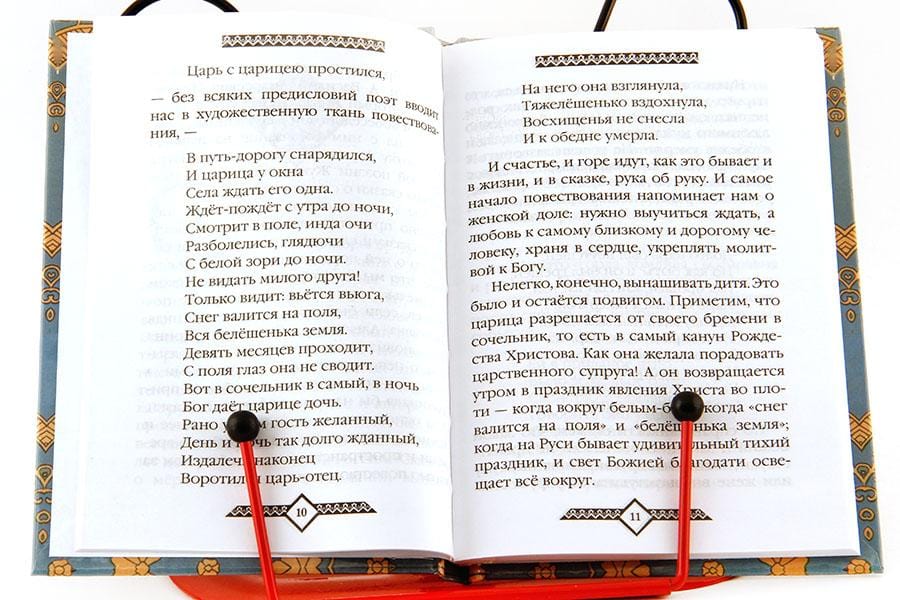 Царь с царицею простился,
— без всяких предисловий поэт вводит
нас в художественную ткань повествова-
ния, —
В путь-дорогу снарядился,
И царица у окна
Села ждать его одна.
Ждёт-пождёт с утра до ночи,
Смотрит в поле, инда очи
Разболелись, глядючи
С белой зори до ночи.
Не видать милого друга!
Только видит: вьётся вьюга,
Снег валится на поля,
Вся белёшенька земля.
Девять месяцев проходит,
С поля глаз она не сводит.
Вот в сочельник в самый, в ночь
Бог даёт царице дочь.
Рано гость желанный,
День и ночь так долго жданный,
Издалеча наконец
Воротился царь-отец.
10
На него она взглянула,
Тяжелёшенько вздохнула,
Восхищенья не снесла
И к обедне умерла.
И счастье, и горе идут, как это бывает и
в жизни, и в сказке, рука об руку. И самое
начало повествования напоминает нам о
женской доле: нужно выучиться ждать, а
любовь к самому близкому и дорогому че-
ловеку, храня в сердце, укреплять молит-
вой к Богу.
Нелегко, конечно, вынашивать дитя. Это
было и остаётся подвигом. Приметим, что
царица разрешается от своего бремени в
сочельник, то есть в самый канун Рожде-
ства Христова. Как она желала порадовать
царственного супруга! А он возвращается
утром в праздник явления Христа во пло-
ти — когда вокруг белым- когда «снег
валится на поля» и «белёшенька земля»;
когда на Руси бывает удивительный тихий
праздник, и свет Божией благодати осве-
щает всё вокруг.
11